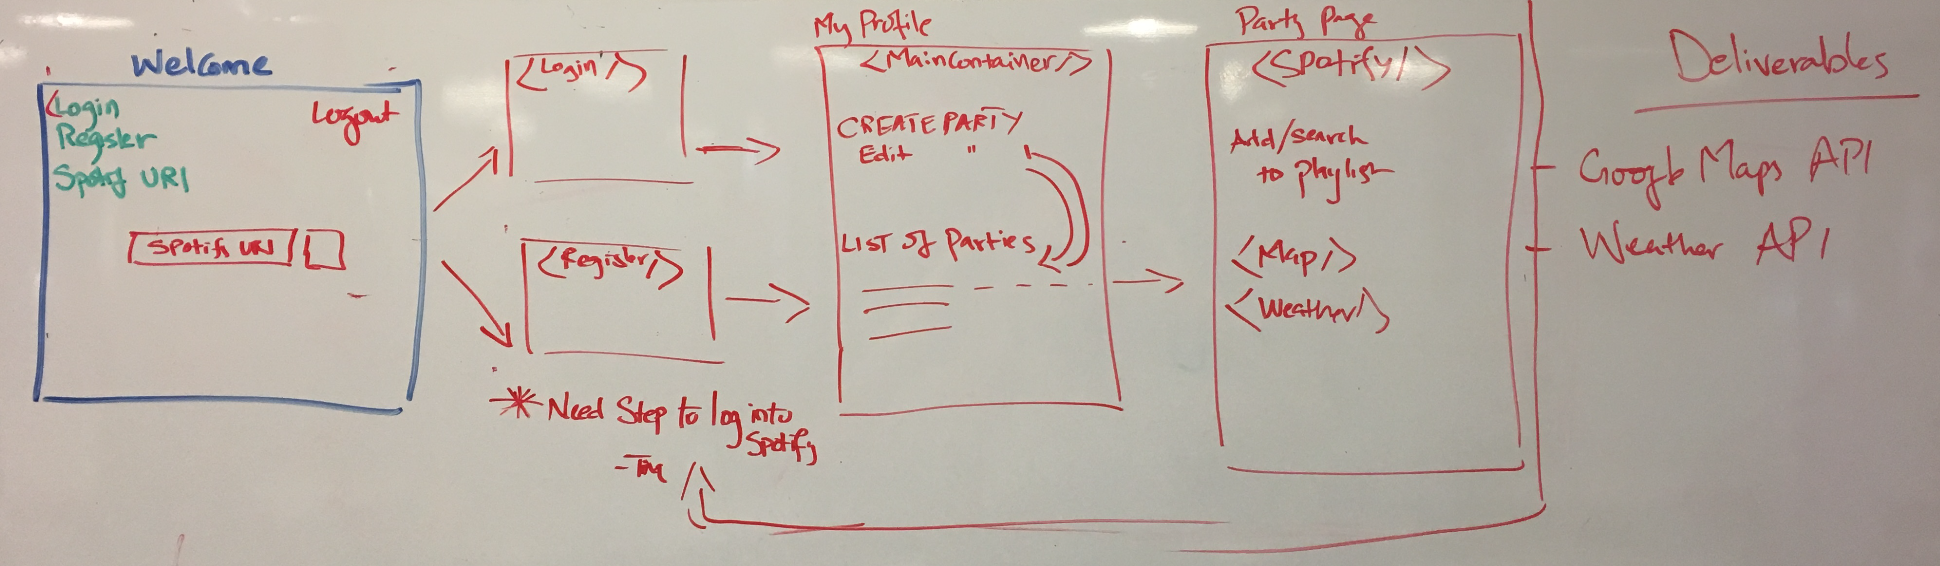 Welcome
Login
Logout
Register
Spotify URI
Spotify URI
<Login/>
<Register/>
* Need Step to log into
Spotify
My Profile
<MainContainer/>
CREATE PARTY
Edit "
LIST of Parties
Party Page
<Spotify/>
Add/search
to playlist
<Map/>
<Weather/>
Deliverables
- Google Maps API
- Weather API